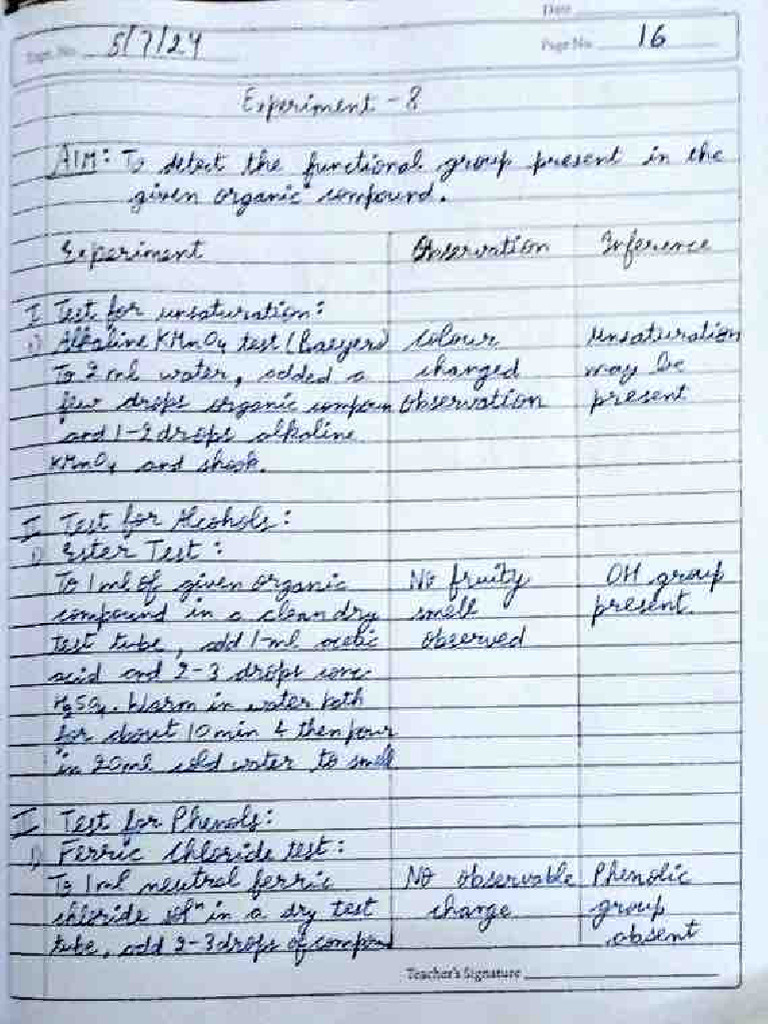 Date
Expt. No. 5/7/24 Page No. 16
Experiment - 8
AIM: To detect the functional group present in the
given organic compound.
Experiment Observation Inference
I Test for unsaturation:
1) Alkaline KMnO4 test (Baeyers) colour unsaturation
To 2 ml water, added a changed may be
few drops organic compoun observation present
and 1-2 drops alkaline
KMnO4 and shook.
I Test for Alcohols:
1) Ester Test:
To 1 ml of given organic No fruity OH group
compound in a clean dry smell present.
test tube, add 1-ml acetic observed
acid and 2-3 drops conc
H2SO4. Warm in water bath
for about 10 min & then pour
in 20 ml cold water to smell
I Test for Phenols:
1) Ferric Chloride test:
To 1 ml neutral ferric No observable Phenolic
chloride solⁿ in a dry test change group
tube, add 2-3 drops of compound absent
Teacher's Signature